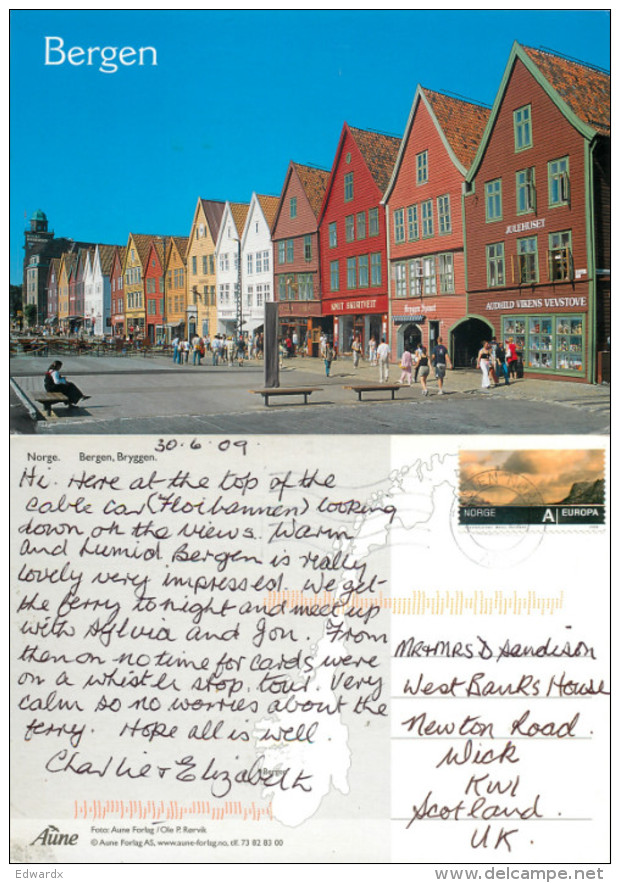 Bergen
JULEHUSET
AUDHILD VIKENS VEVSTOVE
30.6.09.
Norge. Bergen, Bryggen.
Hi. Here at the top of the
cable car (Floibannen) looking
down on the views. Warm
and humid Bergen is really
lovely very impressed. We get
the ferry tonight and meet up
with Sylvia and Jon. From
then on no time for cards were
on a whistle stop tour. Very
calm so no worries about the
ferry. Hope all is well.
Charlie + Elizabeth
NORGE A EUROPA
MR+MRS D Sandison
West Banks House
Newton Road.
Wick
KW1
Scotland.
UK.
Bergen
Aune
Foto: Aune Forlag / Ole P. Rørvik
© Aune Forlag AS, www.aune-forlag.no, tlf. 73 82 83 00
Edwardx
delcampe.net